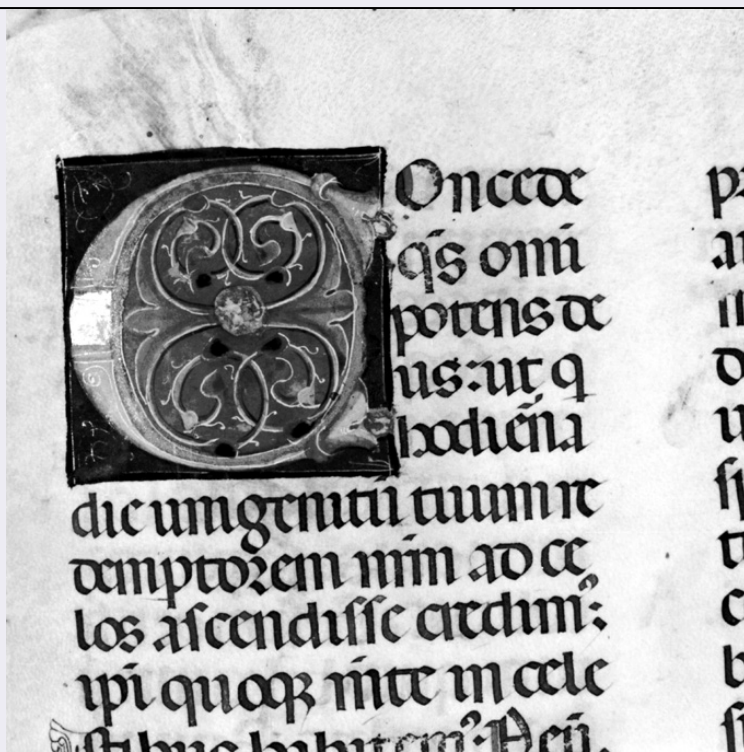 Oncede
qs omi
potens de
us: ut q
hodiena
die unigenitu tuum re
demptorem nrm ad ce
los ascendisse credim:
ipi quoqz mte in cele
stibus habitem. Peū